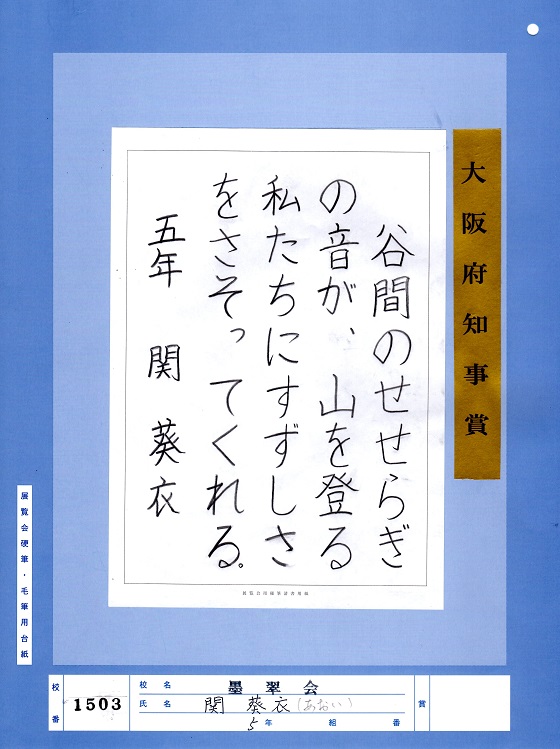 大阪府知事賞
谷間のせせらぎ
の音が、山を登る
私たちにすずしさ
をさそってくれる。
五年 関 葵衣
展覧会硬筆・毛筆用台紙
校番 1503
校名 墨翠会
氏名 関 葵衣(あおい)
5年 組 番
賞